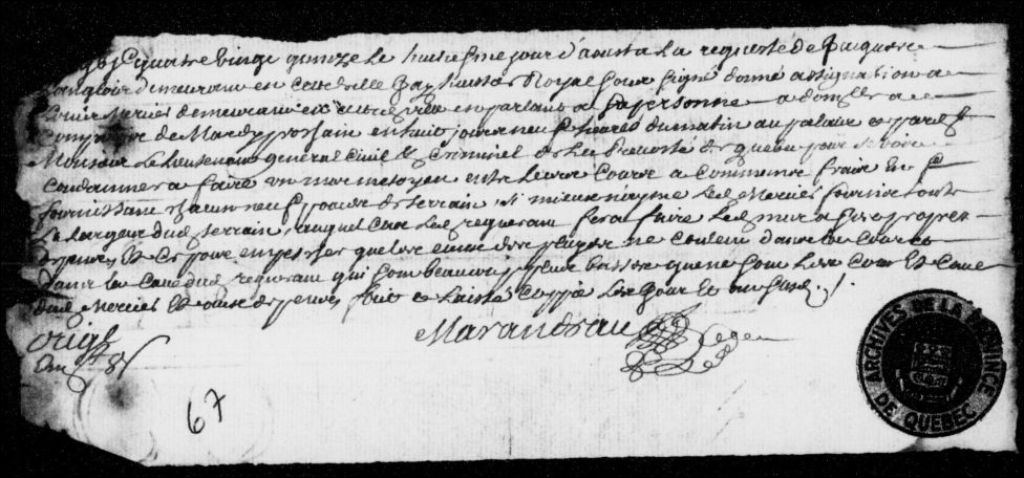 quatre vingt quinze le huitiesme jour d'aoust a la requeste de Jacques
Langlois demeurant en cette ville Jay huissier Royal sous signé donné assignation a
Louis Mercier demeurant en en parlant a sa personne a domille a
comparoir de Mardy prochain en huit jours neuf heures du matin au palais et pardt
Monsieur Le Lieutenant general Civil & Criminel de la Prevosté de quebec pour se voir
Condanner a faire un mur metoyen entre leurs Cours a Commencer fraix en
fournissant chacun neuf pouces de terrain si mieux n'ayme led Mercier fournir toute
La largeur dud terrain, auquel cas led requerant fera faire led mur a ses propres
depens, Et ce pour empescher que les eaux des pluyes ne coulent dans la Cour et
dans la Cave dud requerant qui sont beaucoup plus basse que ne sont les Cour Et Cave
dud Mercier Et outre despens, fait et Laissé Coppie les Jour Et an susd.
Marandeau
orig
67
ARCHIVES DE LA PROVINCE DE QUEBEC